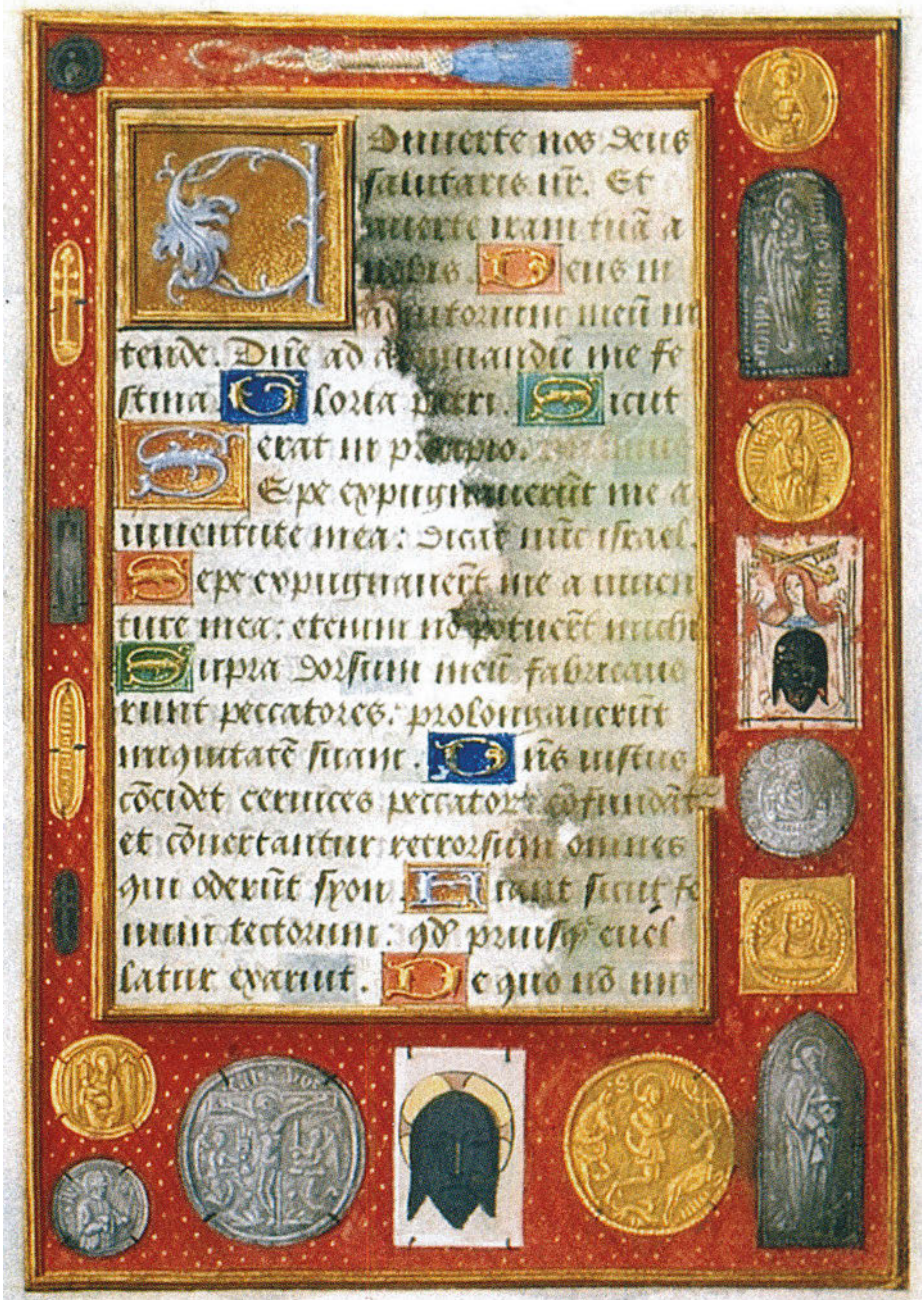 COnuerte nos deus
salutaris nr̄. Et
auerte iram tuā a
nobis. Deus in
adiutorium meū in
tende. Dn̄e ad adiuuandū me fe
stina. Gloria patri. Sicut
erat in
SEpe expugnauerūt me a
iuuentute mea: dicat nūc israel.
Sepe expugnauerūt me a iuuen
tute mea: etenim nō potuerūt michi
Supra dorsum meū fabricaue
runt peccatores: prolongauerūt
iniquitatē suam. Dn̄s iustus
cōcidet ceruices peccatorꝫ cōfundāt
et cōuertantur retrorsum omnes
qui oderūt syon. Fiant sicut fe
num tectorum: qd̄ priusqꝫ euel
latur exaruit. De quo nō im